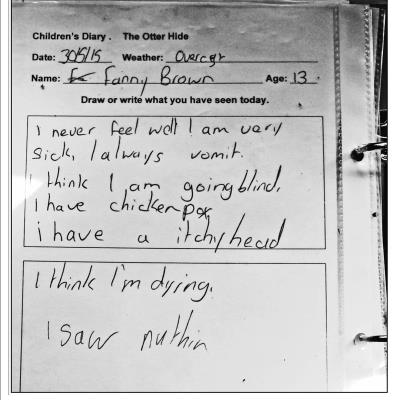 Children's Diary . The Otter Hide
Date: 30/5/15 Weather: Overcast
Name: Fanny Brown Age: 13
Draw or write what you have seen today.
I never feel well I am very
sick, I always vomit.
I think I am going blind.
I have chickenpox
i have a itchy head
I think I'm dying.
I saw nuthin